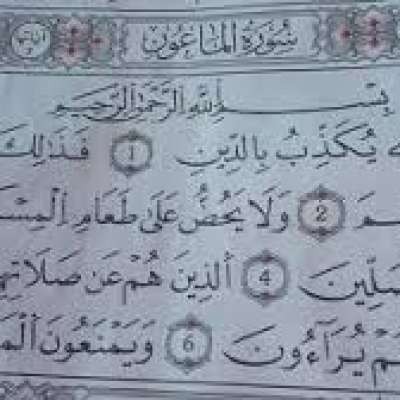 سُورَةُ المَاعُون
بِسْمِ اِللَّهِ اِلرَّحْمَٰنِ اِلرَّحِيمِ
يُكَذِّبُ بِالدِّينِ 1 فَذَٰلِكَ
ـمَ 2 وَلَا يَحُضُّ عَلَىٰ طَعَامِ اِلْمِسْـ
ـصَلِّينَ 4 اَلذِينَ هُمْ عَن صَلَاتِهِـ
ـمْ يُرَآءُونَ 6 وَيَمْنَعُونَ اَلْمَـ